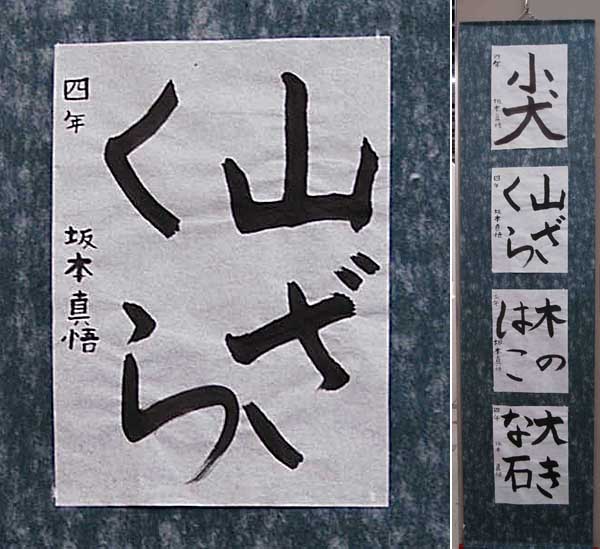 山ざ
くら
四年
坂本真悟
小犬
四年
坂本真悟
山ざ
くら
四年
坂本真悟
木の
はこ
坂本真悟
大き
な石
四年